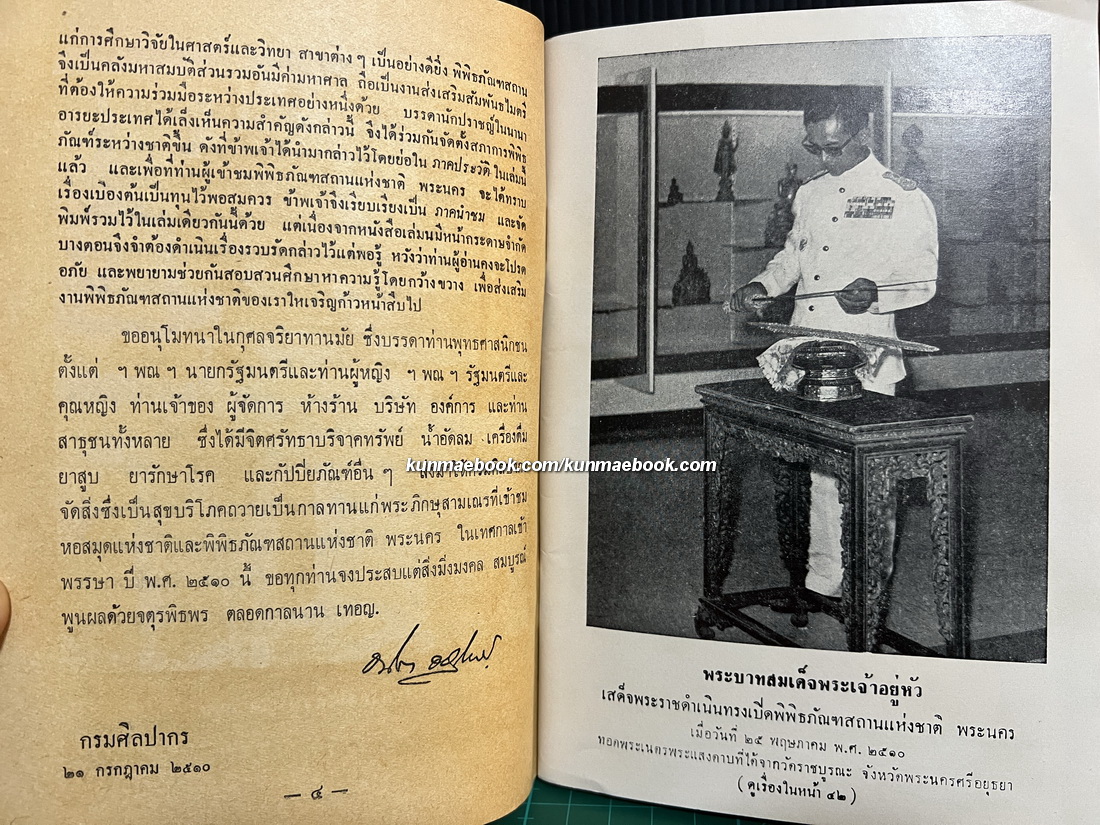 แก่การศึกษาวิจัยในศาสตร์และวิทยา สาขาต่าง ๆ เป็นอย่างดียิ่ง พิพิธภัณฑสถาน
จึงเป็นคลังมหาสมบัติส่วนรวมอันมีค่ามหาศาล ถือเป็นงานส่งเสริมสัมพันธไมตรี
ที่ต้องให้ความร่วมมือระหว่างประเทศอย่างหนึ่งด้วย บรรดานักปราชญ์ในนานา
อารยะประเทศได้เล็งเห็นความสำคัญดังกล่าวนี้ จึงได้ร่วมกันจัดตั้งสภาการพิพิธ
ภัณฑ์ระหว่างชาติขึ้น ดังที่ข้าพเจ้าได้นำมากล่าวไว้โดยย่อใน ภาคประวัติ ในเล่มนี้
แล้ว และเพื่อที่ท่านผู้เข้าชมพิพิธภัณฑสถานแห่งชาติ พระนคร จะได้ทราบ
เรื่องเบื้องต้นเป็นทุนไว้พอสมควร ข้าพเจ้าจึงเรียบเรียงเป็น ภาคนำชม และจัด
พิมพ์รวมไว้ในเล่มเดียวกันนี้ด้วย แต่เนื่องจากหนังสือเล่มนี้มีหน้ากระดาษจำกัด
บางตอนจึงจำต้องดำเนินเรื่องรวบรัดกล่าวไว้แต่พอรู้ หวังว่าท่านผู้อ่านคงจะโปรด
อภัย และพยายามช่วยกันสอบสวนศึกษาหาความรู้โดยกว้างขวาง เพื่อส่งเสริม
งานพิพิธภัณฑสถานแห่งชาติของเราให้เจริญก้าวหน้าสืบไป
ขออนุโมทนาในกุศลจริยาทานมัย ซึ่งบรรดาท่านพุทธศาสนิกชน
ตั้งแต่ ฯ พณ ฯ นายกรัฐมนตรีและท่านผู้หญิง ฯ พณ ฯ รัฐมนตรีและ
คุณหญิง ท่านเจ้าของ ผู้จัดการ ห้างร้าน บริษัท องค์การ และท่าน
สาธุชนทั้งหลาย ซึ่งได้มีจิตศรัทธาบริจาคทรัพย์ น้ำอัดลม เครื่องดื่ม
ยาสูบ ยารักษาโรค และกัปปิยภัณฑ์อื่น ๆ
kunmaebook.com/kunmaebook.com
จัดสิ่งซึ่งเป็นสุขบริโภคถวายเป็นกาลทานแก่พระภิกษุสามเณรที่เข้าชม
หอสมุดแห่งชาติและพิพิธภัณฑสถานแห่งชาติ พระนคร ในเทศกาลเข้า
พรรษา ปี พ.ศ. ๒๕๑๐ นี้ ขอทุกท่านจงประสบแต่สิ่งมิ่งมงคล สมบูรณ์
พูนผลด้วยจตุรพิธพร ตลอดกาลนาน เทอญ.
กรมศิลปากร
๒๑ กรกฎาคม ๒๕๑๐
— ๔ —
พระบาทสมเด็จพระเจ้าอยู่หัว
เสด็จพระราชดำเนินทรงเปิดพิพิธภัณฑสถานแห่งชาติ พระนคร
เมื่อวันที่ ๒๕ พฤษภาคม พ.ศ. ๒๕๑๐
ทอดพระเนตรพระแสงดาบที่ได้จากวัดราชบูรณะ จังหวัดพระนครศรีอยุธยา
(ดูเรื่องในหน้า ๔๒)